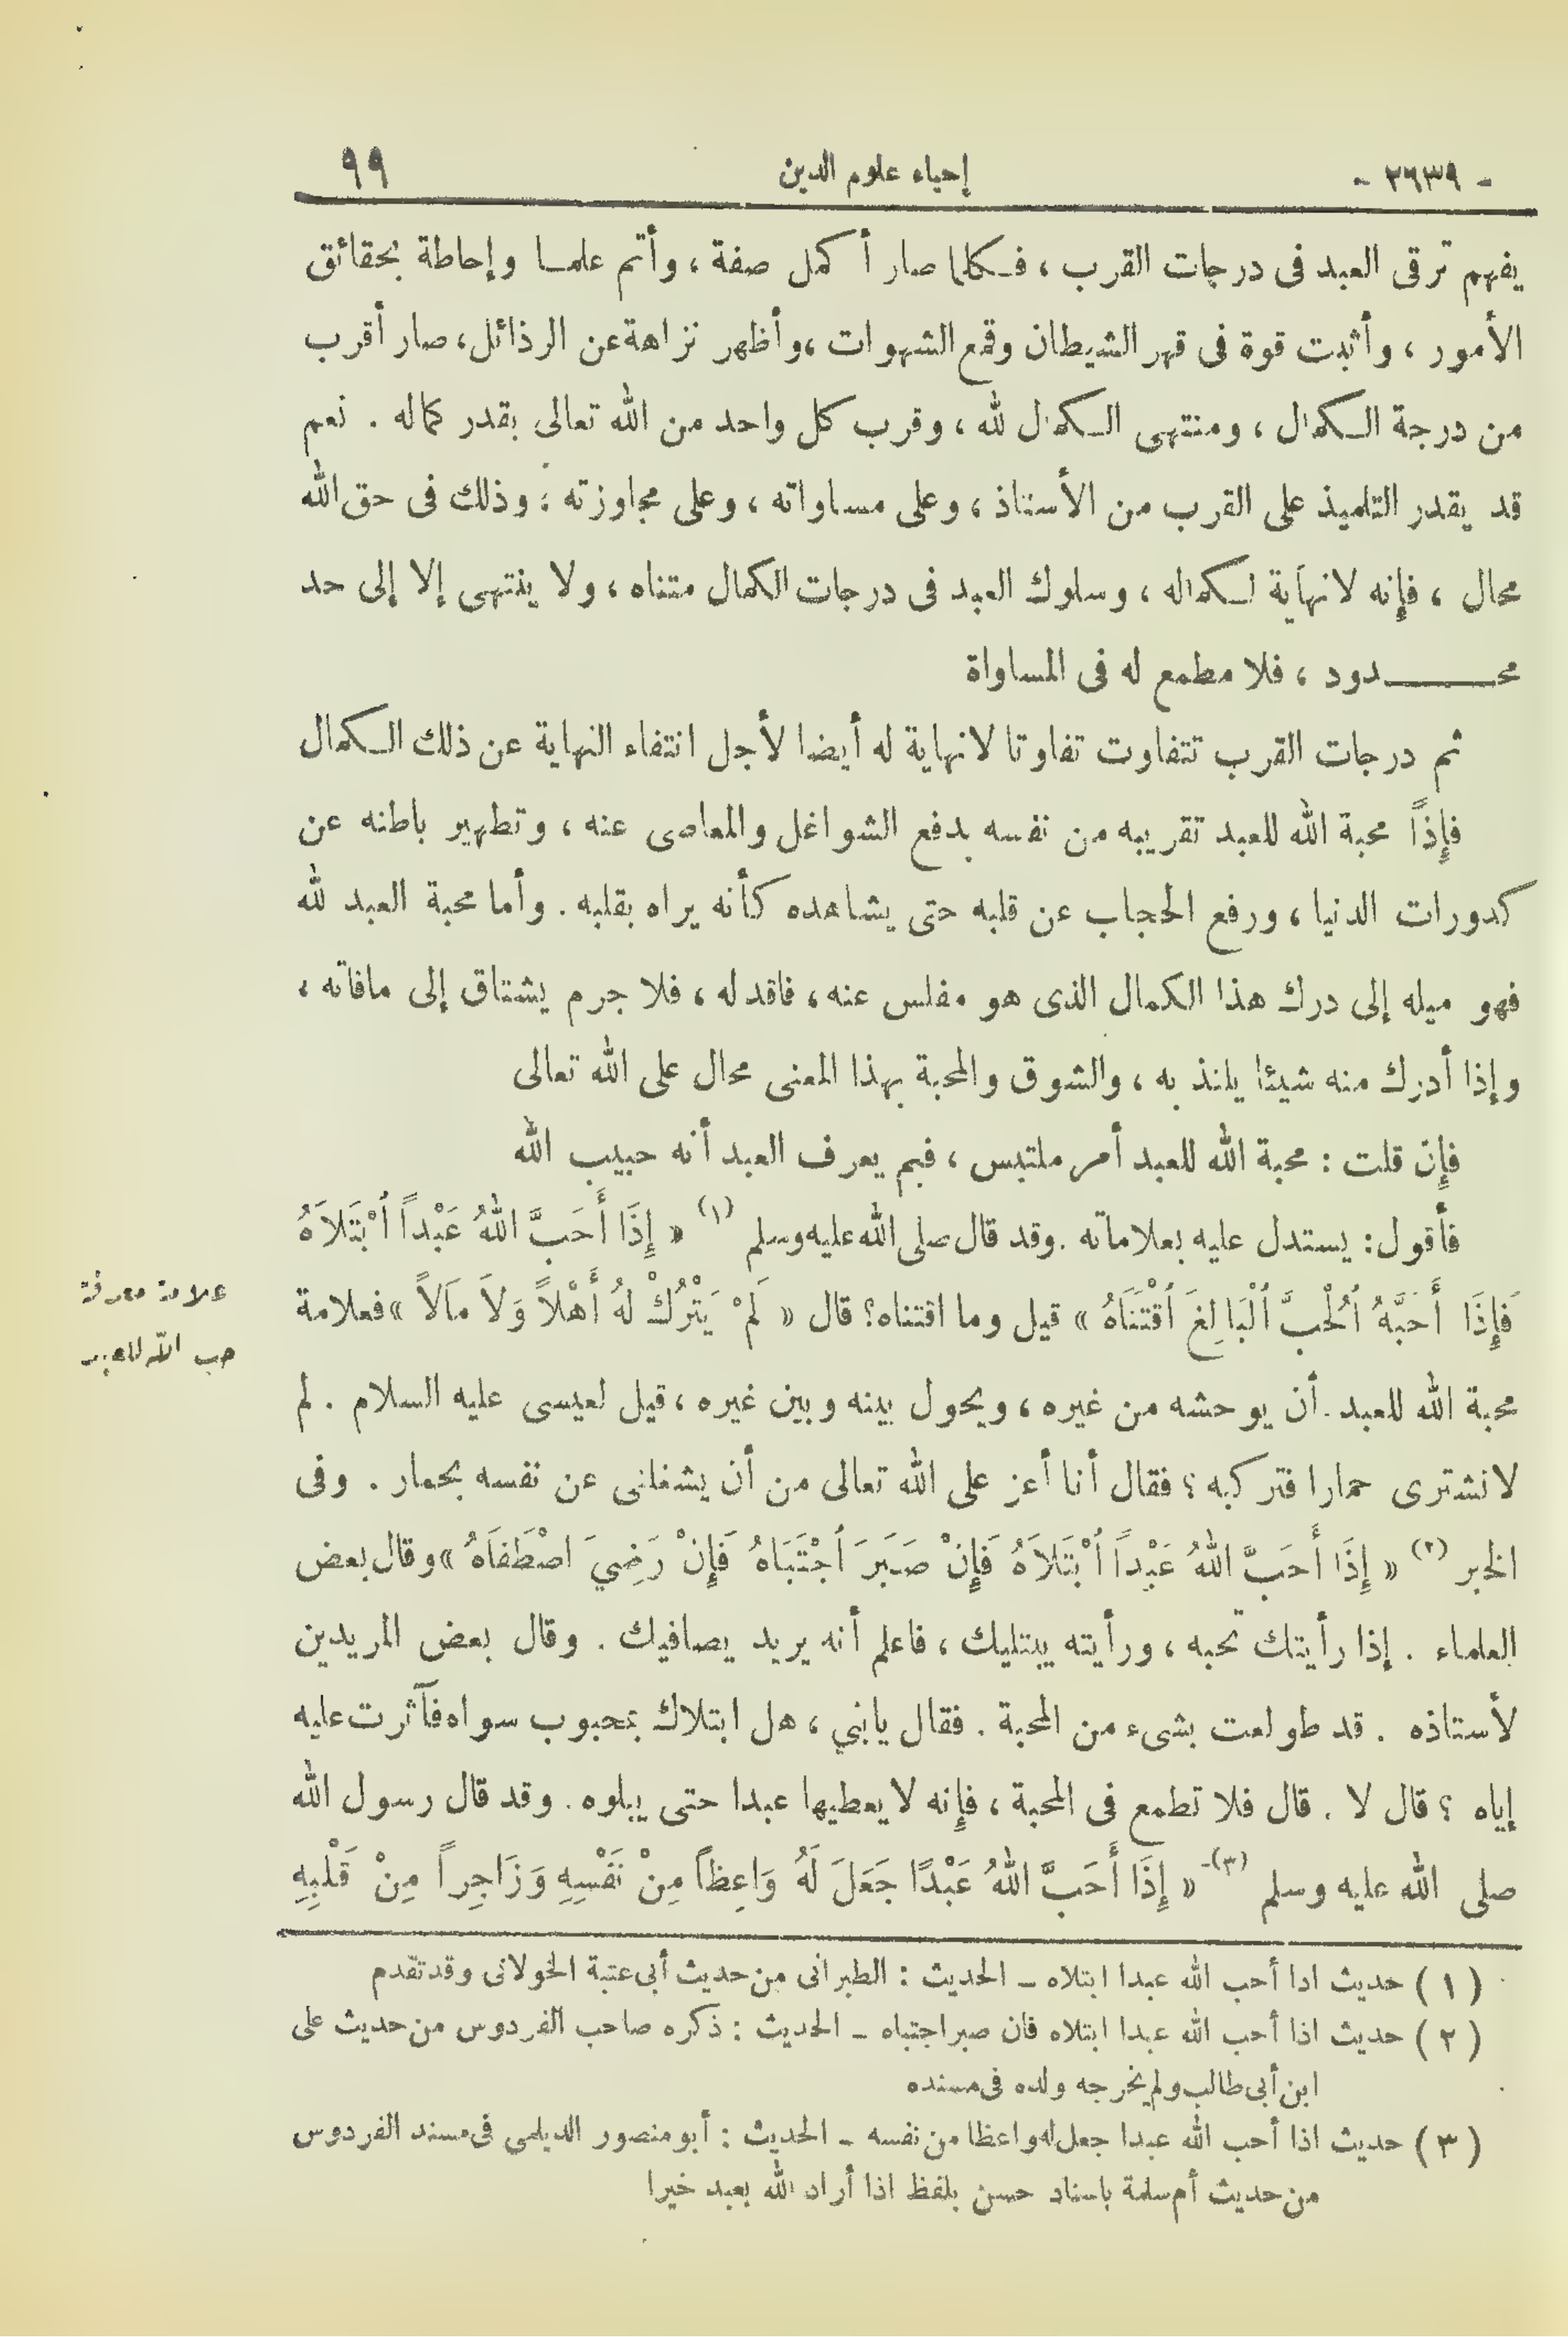 - ٢٦٣٩ - إحياء علوم الدين ٩٩
يفهم ترقى العبد فى درجات القرب ، فكلما صار أكمل صفة ، وأتم علما وإحاطة بحقائق
الأمور ، وأثبت قوة فى قهر الشيطان وقمع الشهوات ، وأظهر نزاهة عن الرذائل ، صار أقرب
من درجة الكمال ، ومنتهى الكمال لله ، وقرب كل واحد من الله تعالى بقدر كماله . نعم
قد يقدر التلميذ على القرب من الأستاذ ، وعلى مساواته ، وعلى مجاوزته ؛ وذلك فى حق الله
محال ، فإنه لانهاية لكماله ، وسلوك العبد فى درجات الكمال متناه ، ولا ينتهى إلا إلى حد
محـــدود ، فلا مطمع له فى المساواة
ثم درجات القرب تتفاوت تفاوتا لانهاية له أيضا لأجل انتفاء النهاية عن ذلك الكمال
فإذاً محبة الله للعبد تقريبه من نفسه بدفع الشواغل والمعاصى عنه ، وتطهير باطنه عن
كدورات الدنيا ، ورفع الحجاب عن قلبه حتى يشاهده كأنه يراه بقلبه . وأما محبة العبد لله
فهو ميله إلى درك هذا الكمال الذى هو مفلس عنه ، فاقد له ، فلا جرم يشتاق إلى مافاته ،
وإذا أدرك منه شيئا يلتذ به ، والشوق والمحبة بهذا المعنى محال على الله تعالى
فإن قلت : محبة الله للعبد أمر ملتبس ، فبم يعرف العبد أنه حبيب الله
فأقول : يستدل عليه بعلاماته . وقد قال صلى الله عليه وسلم (١) « إِذَا أَحَبَّ اللهُ عَبْداً اُبْتَلاَهُ
فَإِذَا أَحَبَّهُ اُلْحُبَّ اُلْبَالِغَ اُقْتَنَاهُ » قيل وما اقتناه؟ قال « لَمْ يَتْرُكْ لَهُ أَهْلاً وَلاَ مَالاً » فعلامة
محبة الله للعبد . أن يوحشه من غيره ، ويحول بينه وبين غيره ، قيل لعيسى عليه السلام . لم
لاتشترى حمارا فتركبه ؟ فقال أنا أعز على الله تعالى من أن يشغلنى عن نفسه بحمار . وفى
الخبر (٢) « إِذَا أَحَبَّ اللهُ عَبْداً اُبْتَلاَهُ فَإِنْ صَبَرَ اُجْتَبَاهُ فَإِنْ رَضِيَ اصْطَفَاهُ » وقال بعض
العلماء . إذا رأيتك تحبه ، ورأيته يبتليك ، فاعلم أنه يريد يصافيك . وقال بعض المريدين
لأستاذه . قد طولعت بشىء من المحبة . فقال يابني ، هل ابتلاك بمحبوب سواه فآثرت عليه
إياه ؟ قال لا . قال فلا تطمع فى المحبة ، فإنه لايعطيها عبدا حتى يبلوه . وقد قال رسول الله
صلى الله عليه وسلم (٣) « إِذَا أَحَبَّ اللهُ عَبْدًا جَعَلَ لَهُ وَاعِظاً مِنْ نَفْسِهِ وَزَاجِراً مِنْ قَلْبِهِ
علامة معرفة
حب الله للعبد
( ١ ) حديث اذا أحب الله عبدا ابتلاه - الحديث : الطبرانى من حديث أبى عتبة الخولانى وقد تقدم
( ٢ ) حديث اذا أحب الله عبدا ابتلاه فان صبر اجتباه - الحديث : ذكره صاحب الفردوس من حديث على
ابن أبى طالب ولم يخرجه ولده فى مسنده
( ٣ ) حديث اذا أحب الله عبدا جعل له واعظا من نفسه - الحديث : أبو منصور الديلمى فى مسند الفردوس
من حديث أم سلمة باسناد حسن بلفظ اذا أراد الله بعبد خيرا